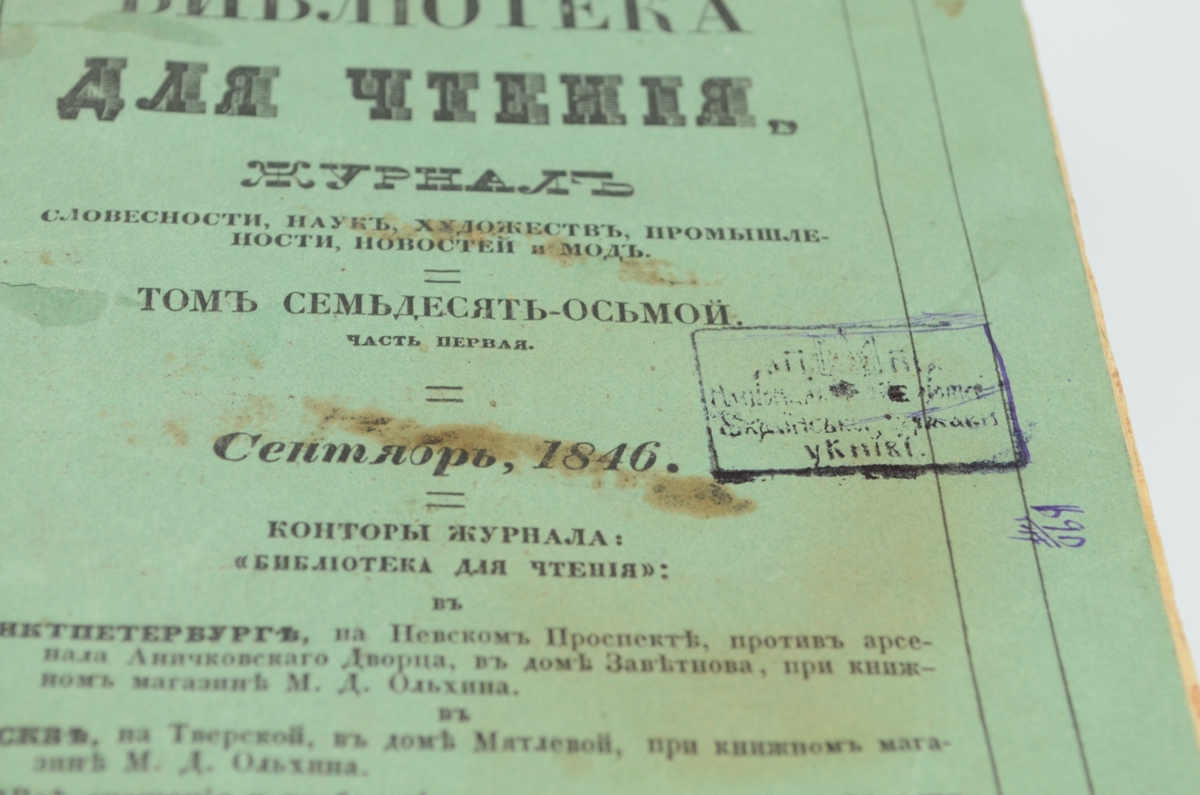 БИБЛІОТЕКА
ДЛЯ ЧТЕНІЯ,
ЖУРНАЛЪ
СЛОВЕСНОСТИ, НАУКЪ, ХУДОЖЕСТВЪ, ПРОМЫШЛЕ-
НОСТИ, НОВОСТЕЙ и МОДЪ.
ТОМЪ СЕМЬДЕСЯТЬ-ОСЬМОЙ.
ЧАСТЬ ПЕРВАЯ.
Української Держави
у Київі.
Сентябрь, 1846.
КОНТОРЫ ЖУРНАЛА:
«БИБЛІОТЕКА ДЛЯ ЧТЕНІЯ»:
въ
НКТПЕТЕРБУРГѢ, на Невскомъ Проспектѣ, противъ арсе-
нала Аничковскаго Дворца, въ домѣ Завѣтнова, при книж-
номъ магазинѣ М. Д. Ольхина.
въ
СКВѢ, на Тверской, въ домѣ Мятлевой, при книжномъ мага-
зинѣ М. Д. Ольхина.